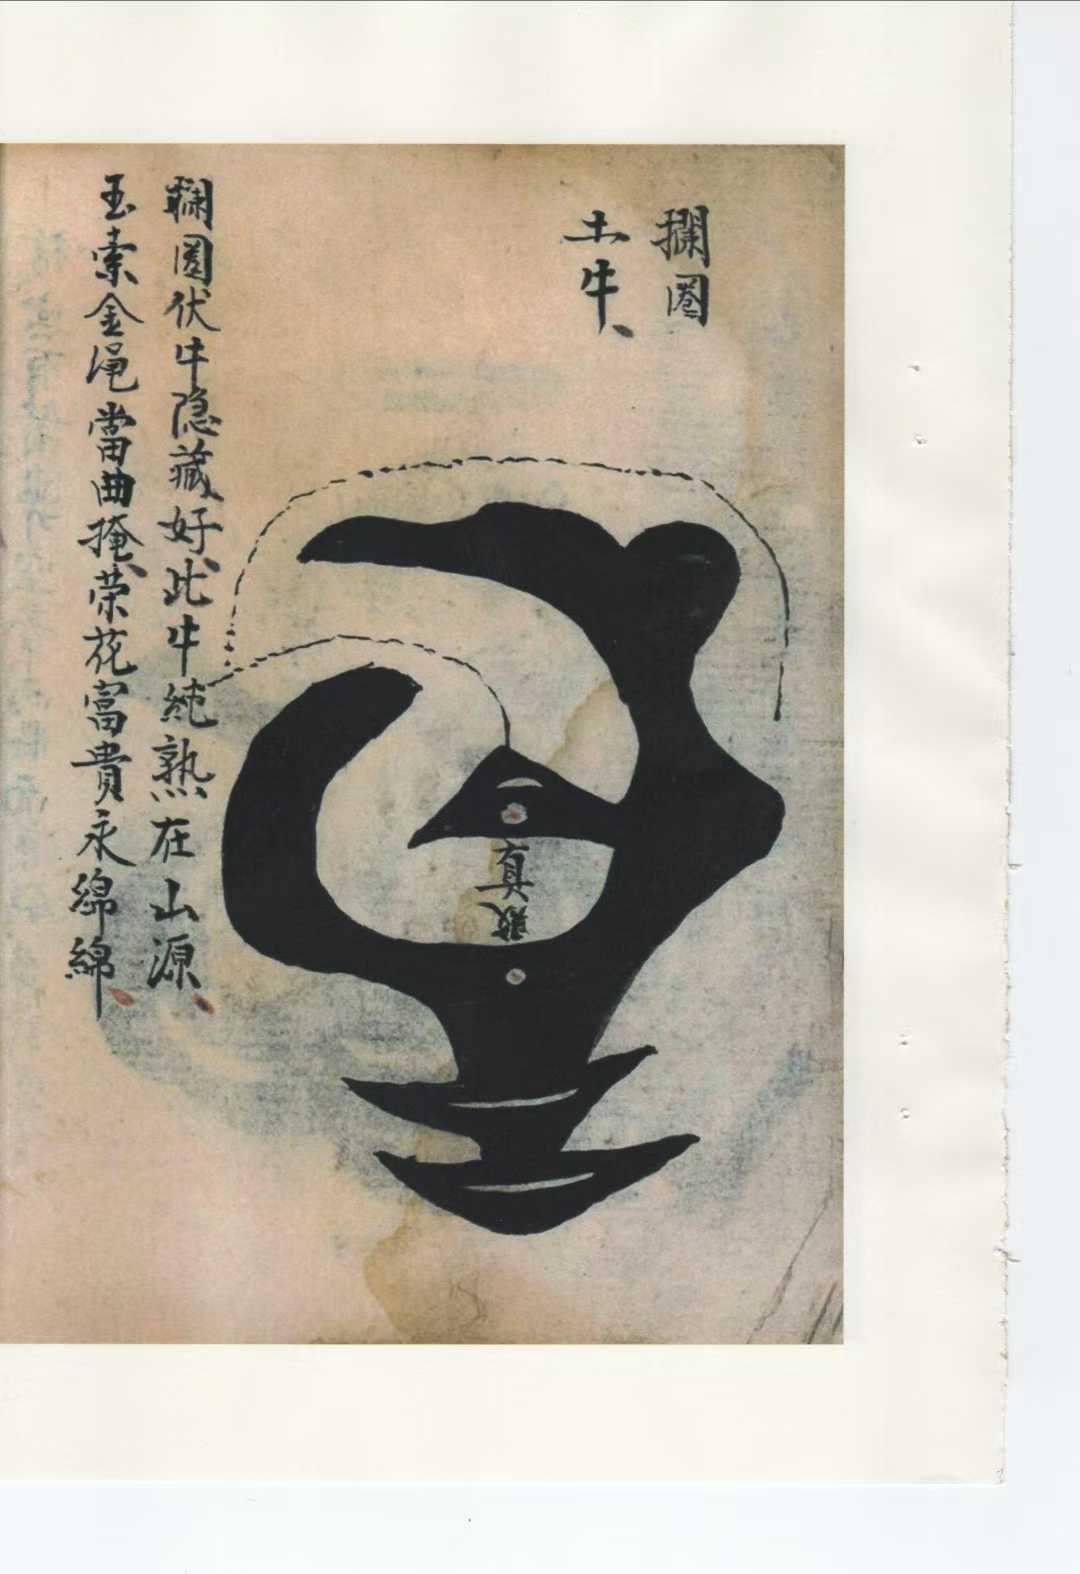 攔圈
土牛
欗圈伏牛隐藏好此牛純熟在山源
玉索金绳當曲掩荣花富貴永綿綿
真